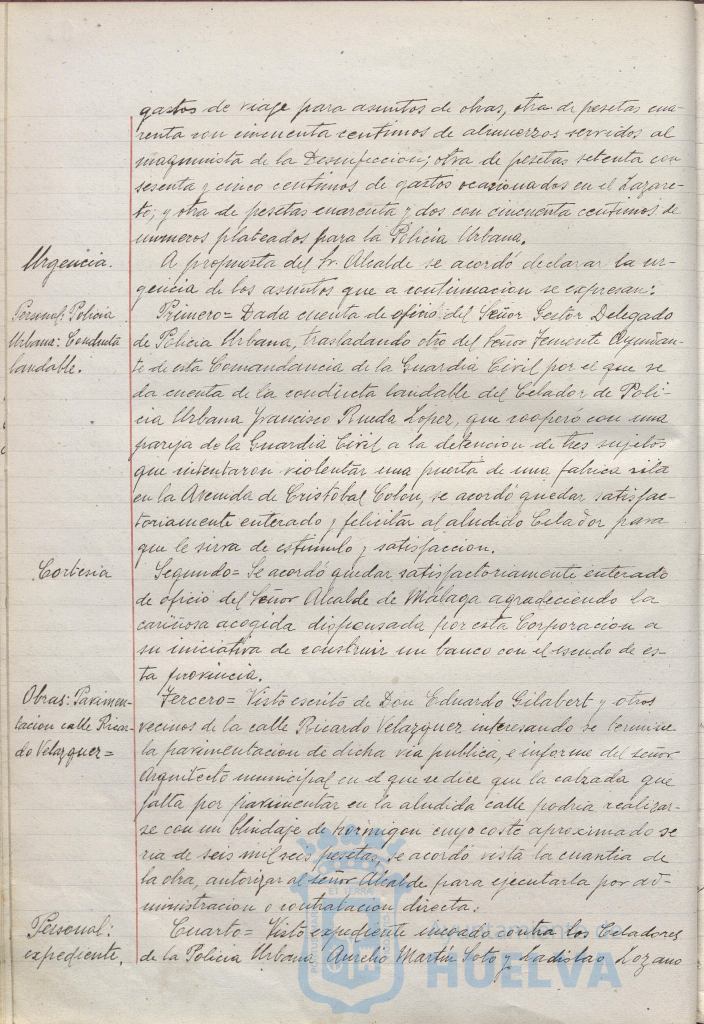 gastos de viaje para asuntos de obras, otra de pesetas cua-
renta con cincuenta centimos de almuerzos servidos al
maquinista de la Desinfeccion; otra de pesetas setenta con
sesenta y cinco centimos de gastos ocasionados en el Lazare-
to; y otra de pesetas cuarenta y dos con cincuenta centimos de
numeros plateados para la Policia Urbana.
Urgencia.
A propuesta del Sr. Alcalde se acordó declarar la ur-
gencia de los asuntos que a continuacion se expresan:
Personal: Policia
Urbana: Conducta
laudable.
Primero= Dada cuenta de oficio del Señor Gestor Delegado
de Policia Urbana, trasladando otro del Señor Teniente Ayudan-
te de esta Comandancia de la Guardia Civil por el que se
da cuenta de la conducta laudable del Celador de Poli-
cia Urbana Francisco Rueda Lopez, que cooperó con una
pareja de la Guardia Civil a la detencion de tres sujetos
que intentaron violentar una puerta de una fabrica sita
en la Avenida de Cristobal Colon, se acordó quedar satisfac-
toriamente enterado y felicitar al aludido Celador para
que le sirva de estimulo y satisfaccion.
Cortesia
Segundo= Se acordó quedar satisfactoriamente enterado
de oficio del Señor Alcalde de Málaga agradeciendo la
cariñosa acogida dispensada por esta Corporacion a
su iniciativa de construir un banco con el escudo de es-
ta provincia.
Obras: Pavimen-
tacion calle Ricar-
do Velazquez=
Tercero= Visto escrito de Don Eduardo Gilabert y otros
vecinos de la calle Ricardo Velazquez interesando se termine
la pavimentacion de dicha via publica, e informe del señor
Arquitecto municipal en el que se dice que la calzada que
falta por pavimentar en la aludida calle podria realizar-
se con un blindaje de hormigon cuyo coste aproximado se
ria de seis mil pesetas, se acordó vista la cuantia de
la obra, autorizar al señor Alcalde para ejecutarla por ad-
ministracion o contratacion directa.
Personal:
expediente.
Cuarto= Visto expediente incoado contra los Celadores
de la Policia Urbana Aurelio Martín Soto y Ladislao Lozano
HUELVA